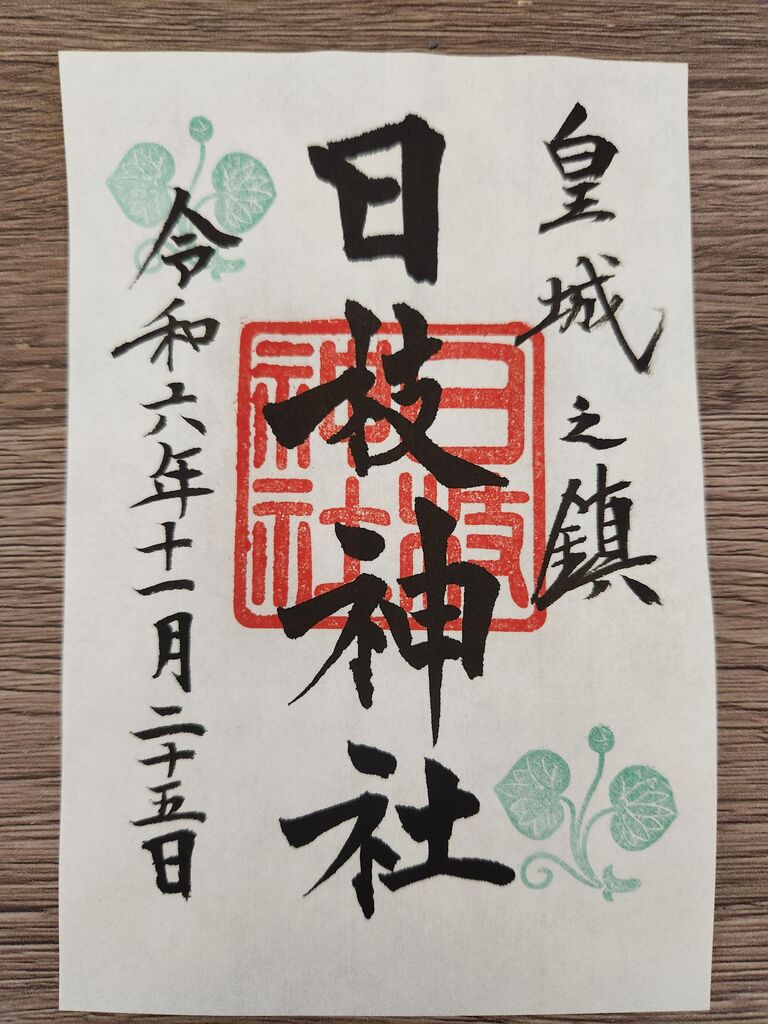 皇城之鎮
日枝神社
日枝神社
令和六年十一月二十五日